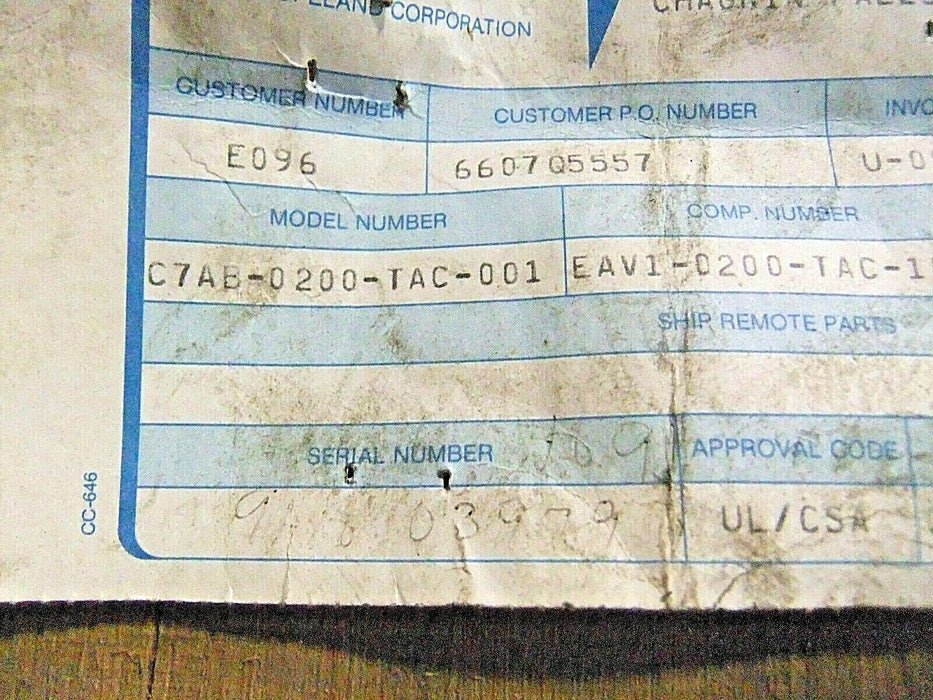 CORPORATION
CUSTOMER NUMBER CUSTOMER P.O. NUMBER
E096 6607Q5557
MODEL NUMBER COMP. NUMBER
C7AB-0200-TAC-001 EAV1-0200-TAC-1
SHIP REMOTE PARTS
SERIAL NUMBER APPROVAL CODE
UL/CSA
CC-646